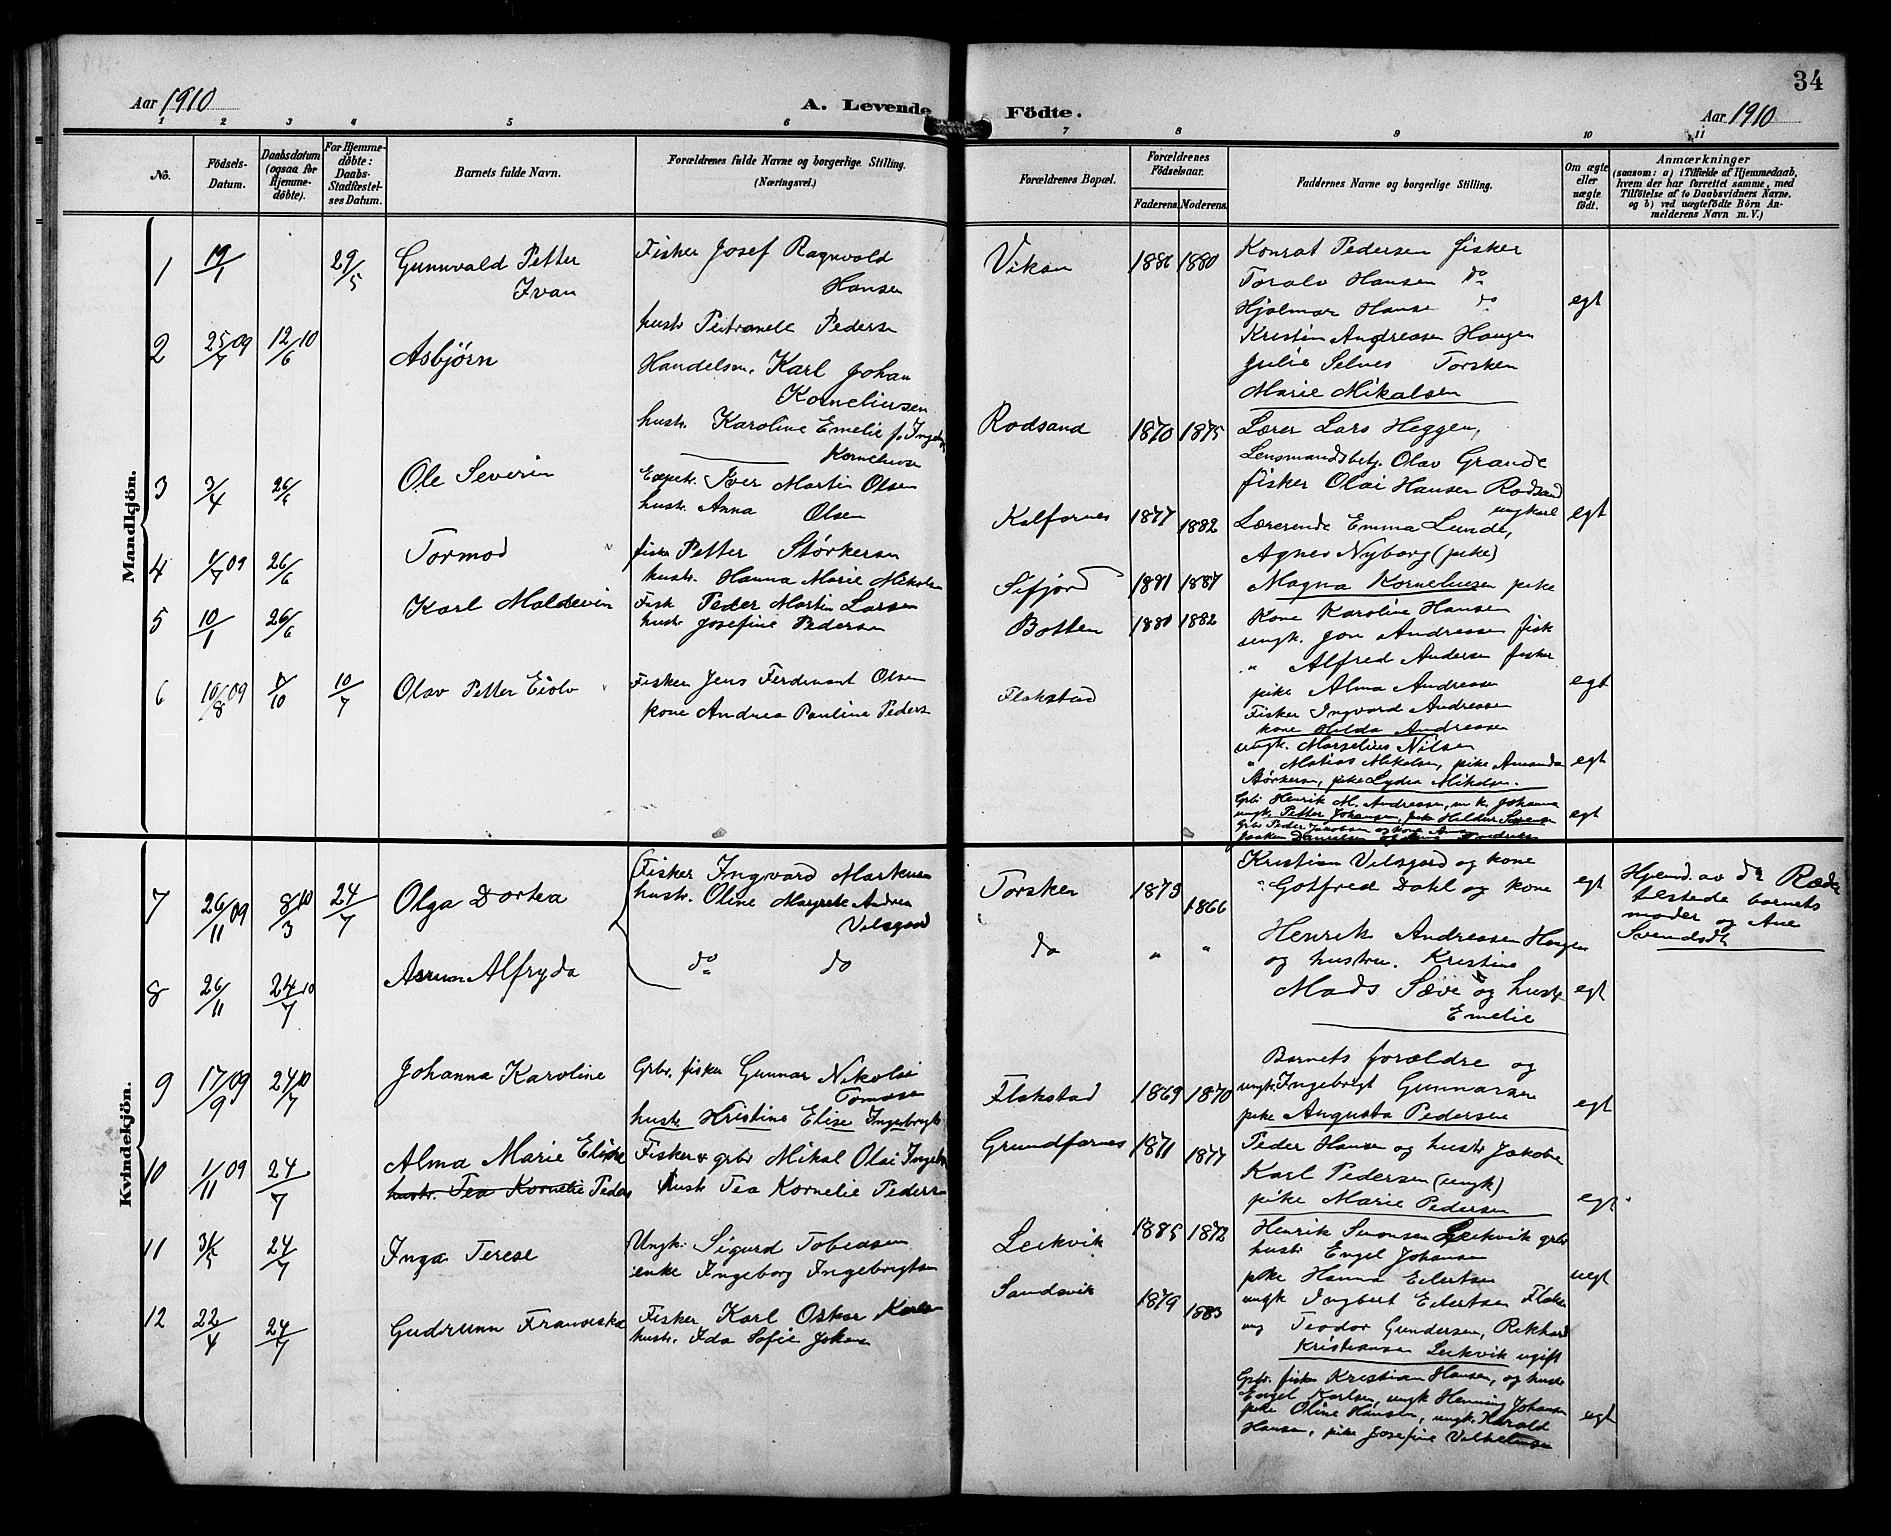 34
Aar 1910
A. Levende Födte.
Aar 1910
1 2 3 4 5 6 7 8 9 10 11
No.
Födsels-Datum.
Daabsdatum (ogsaa for Hjemme-döbte).
For Hjemme-döbte: Daabs-Stadfæstel-ses Datum.
Barnets fulde Navn.
Forældrenes fulde Navne og borgerlige Stilling.
(Næringsvei.)
Forældrenes Bopæl.
Forældrenes Födselsaar.
Faderens. Moderens.
Faddernes Navne og borgerlige Stilling.
Om ægte eller uægte födt.
Anmærkninger
(saasom: a) i Tilfælde af Hjemmedaab,
hvem der har forrettet samme, med
Tilföielse af to Daabsvidners Navne.
og b) ved uægtefödte Börn An-
melderens Navn m. V.)
Mandkjön.
1 19/1 29/5 Gunnvald Petter Ivan
Fisker Josef Ragnvald Hansen
hustr Petranell Peders
Vikan 1880
Konrat Pedersen fisker
Toralv Hansen do
Hjalmar Hanse do
Kristin Andreasen Haugen
Julie Selnes Torsken
Marie Mikalsen
egt
2 25/7 09 12/6 10 Asbjørn
Handelsm. Karl Johan Korneliusen
hustr. Karoline Emelie f.
Rodsand 1870 1875
Lærer Lars Heggen,
Lensmandsbetj. Olav Grande
fisker Olai Hansen Rodsand ungkarl
Lærerinde Emma Lunde,
Agnes Nyborg (pike)
Magna Korneliusen pike
egt
3 3/4 26/6 Ole Severin
Iver Martin Olsen
hustr. Anna Olsen
Kalfarnes 1877 1882
Kone Karoline Hansen
ungk. Jon Andreassen fisk
" Alfred Andersen fisker
pike Alma Andreasen
Fisker Ingvard Andreasen
kone Hilda Andreasen
egt
4 1/7 09 26/6 Tormod
fisker Petter Størkersen
hustr. Hanna Marie Mikalsen
Sifjord 1881 1887
ungk. Marselius Nilsen
" Matias Mikalsen, pike Amanda
Størkersen, pike Lydia Mikalsen.
egt
5 10/1 26/6 Karl Maldevin
Fisk Peder Martin Larsen
hustr Josefine Pedersen
Botten 1880 1882
Grbr Henrik M. Andreassen, Johanna
ungk. Petter Johansen, pike
egt
6 16/8 09 10/7 Olav Petter Eiolv
Fisker Jens Ferdinant Olsen
kone Andrea Pauline Peders
Flakstad
Grbr Peder Jakobsen og kone
Kvindekjön.
7 26/11 09 8/3 10 24/7 Olga Dortea
Fisker Ingvard Markusen
hustr. Oline Margrete Andrea Vilsgaard
Torsken 1873 1866
Kristian Vilsgard og kone
Gotfred Dahl og kone
egt
Hjemd. av
tilstede barnets
moder og Ane
Svendsdt
8 26/11 24/7 10 Asrun Alfryda
do do
do " "
Henrik Andreasen Haugen
og hustru. Kristine
Mads Sæve og hustr
Emelie
egt
9 17/9 09 24/7 10 Johanna Karoline
Grbr. fisker Gunnar Nikolai Tomasen
hustr Kristine Elise Ingebrigts
Flakstad 1869 1870
Barnets forældre og
ungk. Ingebrigt Gunnarsen
pike Augusta Pedersen
egt
10 1/11 09 24/7 Alma Marie Elisne
hustr. Tea Kornelie Peders
Fisker grbr Mikal Olai
hustr Tea Kornelie Peders
Grundfarnes 1871 1877
Peder Hansen og hustr Jakobe
Karl Pedersen (ungk)
pike Marie Pedersen
egt
11 24/7 Inga Terese
Ungk. Sigurd Tobiasen
enke Ingeborg Ingebrigtsen
Leikvik 1885 1872
Henrik Simonsen Leikvik grbr
hustr Engel Johansen
pike Hanna Eilertsen
ungk Ingbert Eilertsen
ung Teodor Gundersen, Rikhard
Kristiansen Leikvik ugift
uegt
12 22/4 24/7 Gudrunn Franciska
Fisker Karl Oskar
hustr. Ida Sofie
Sandsvik 1879 1883
Grbr. fisker Kristian Hansen, og hustr
Engel Karlsen, ungk Henning Johansen
pike Oline Hansen, ungk. Harald
Hansen, pike Josefine Vilhelmsen
egt